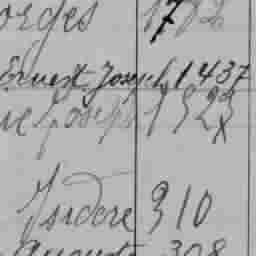 orges 1782
Ernest Joseph 1437
Joseph 1323
Isidore 310
August 308